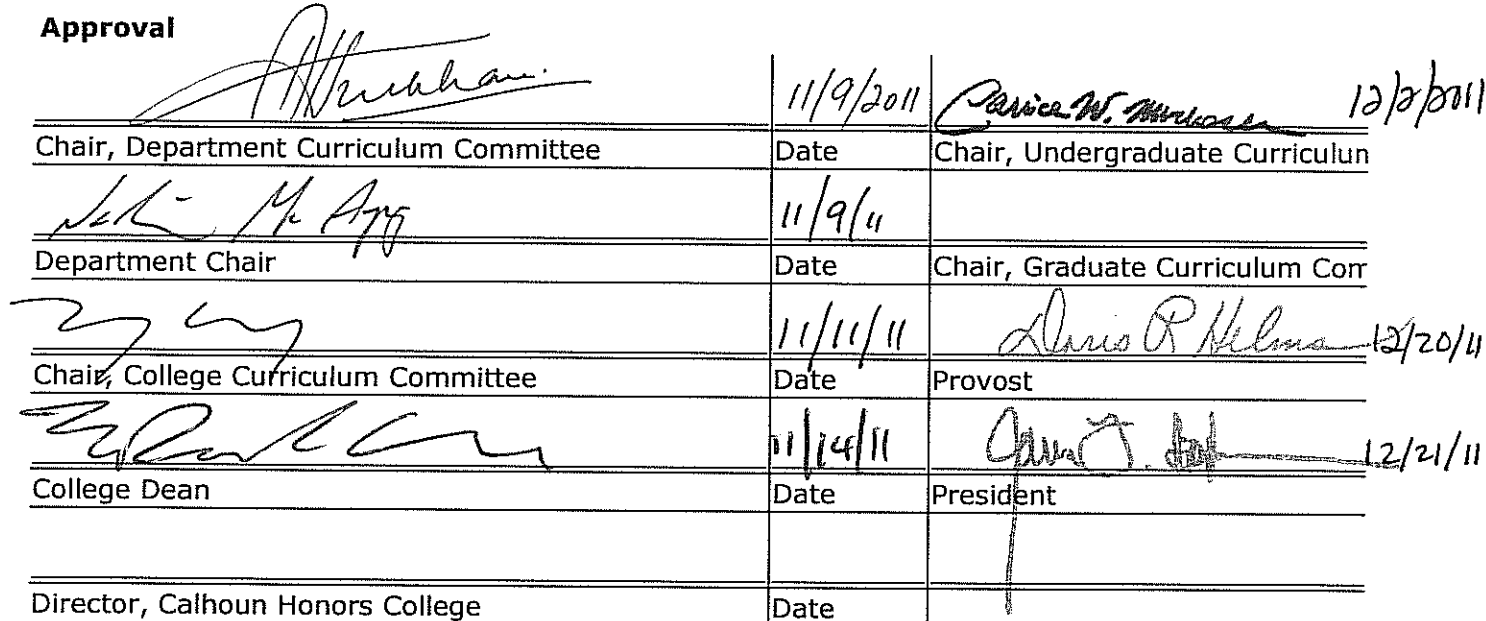 Approval
11/9/2011 12/2/2011
Chair, Department Curriculum Committee Date Chair, Undergraduate Curriculun
11/9/11
Department Chair Date Chair, Graduate Curriculum Com
11/11/11 Doris R Helms 12/20/11
Chair, College Curriculum Committee Date Provost
11/14/11 12/21/11
College Dean Date President
Director, Calhoun Honors College Date